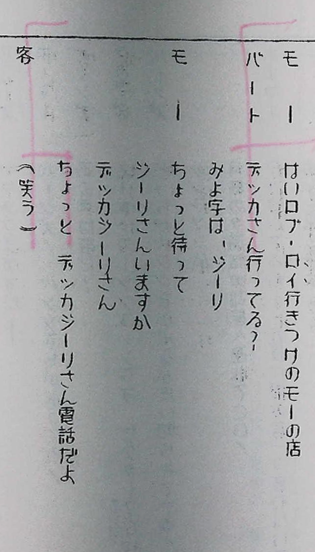 モー はいロブ・ロイ行きつけのモーの店
バート デッカさん行ってる?
みょ字は、ジーリ
モー ちょっと待って
ジーリさんいますか
デッカジーリさん
ちょっと デッカジーリさん電話だよ
客 (笑う)